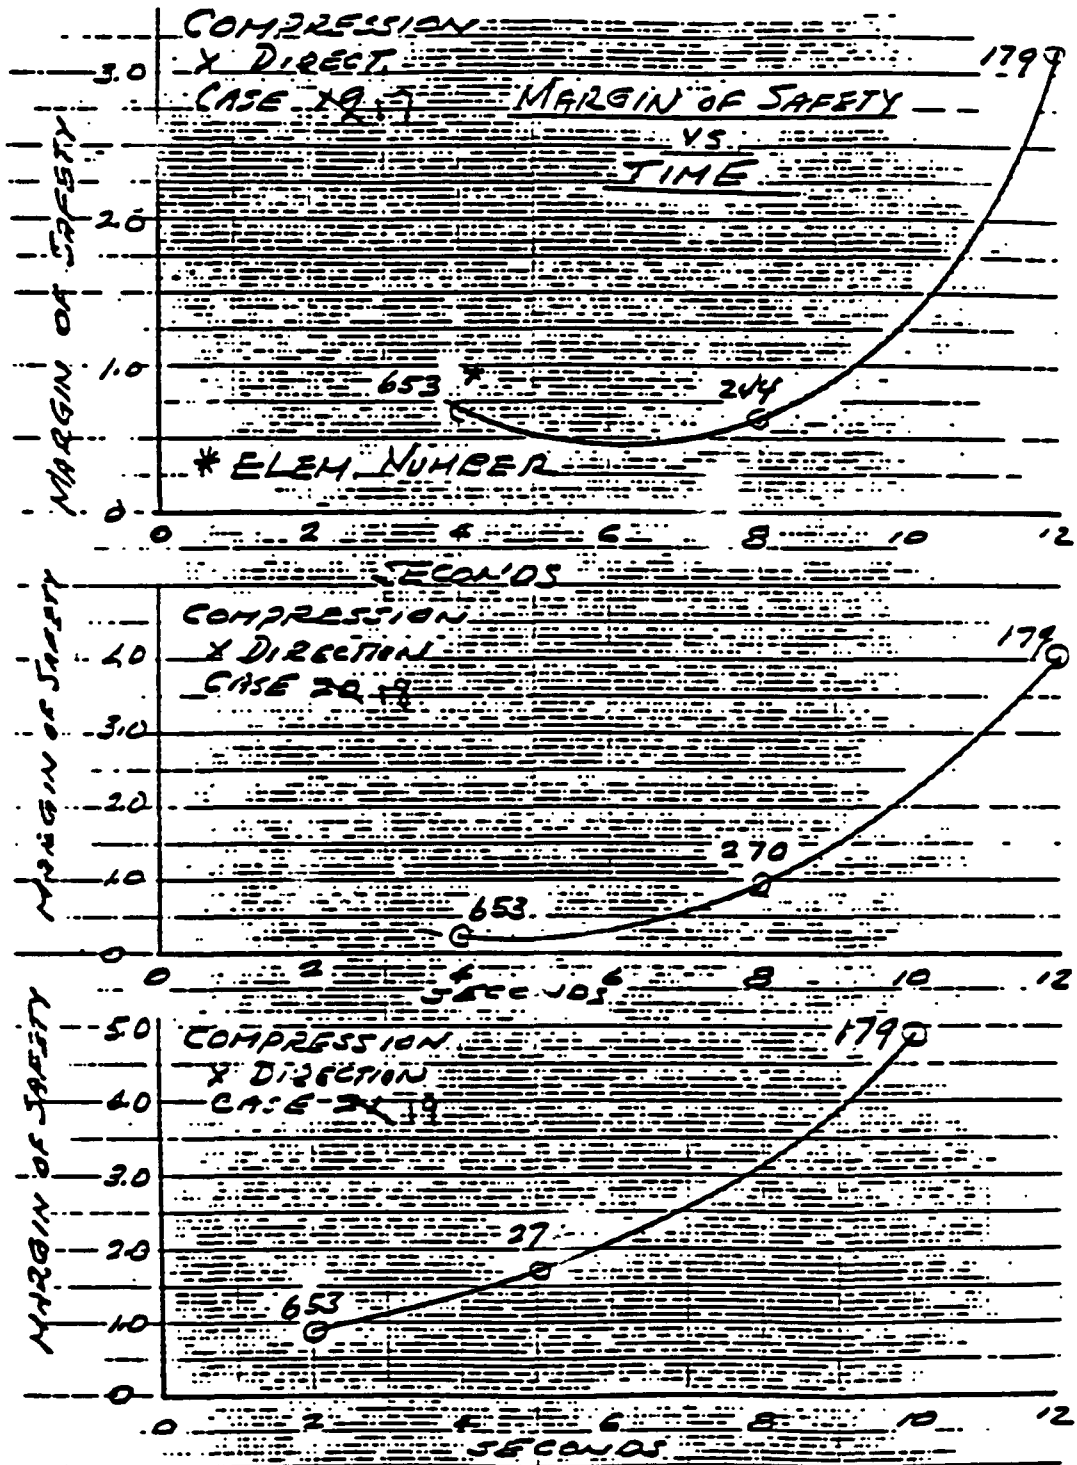 COMPRESSION
X DIRECT.
CASE 17
MARGIN OF SAFETY
VS.
TIME
MARGIN OF SAFETY
3.0
2.0
1.0
0
179
653 *
244
* ELEM. NUMBER
0 2 4 6 8 10 12
SECONDS
COMPRESSION
X DIRECTION
CASE 20 18
MARGIN OF SAFETY
4.0
3.0
2.0
1.0
0
179
270
653
0 2 4 6 8 10 12
SECONDS
COMPRESSION
X DIRECTION
CASE 19
MARGIN OF SAFETY
5.0
4.0
3.0
2.0
1.0
0
179
27
653
0 2 4 6 8 10 12
SECONDS